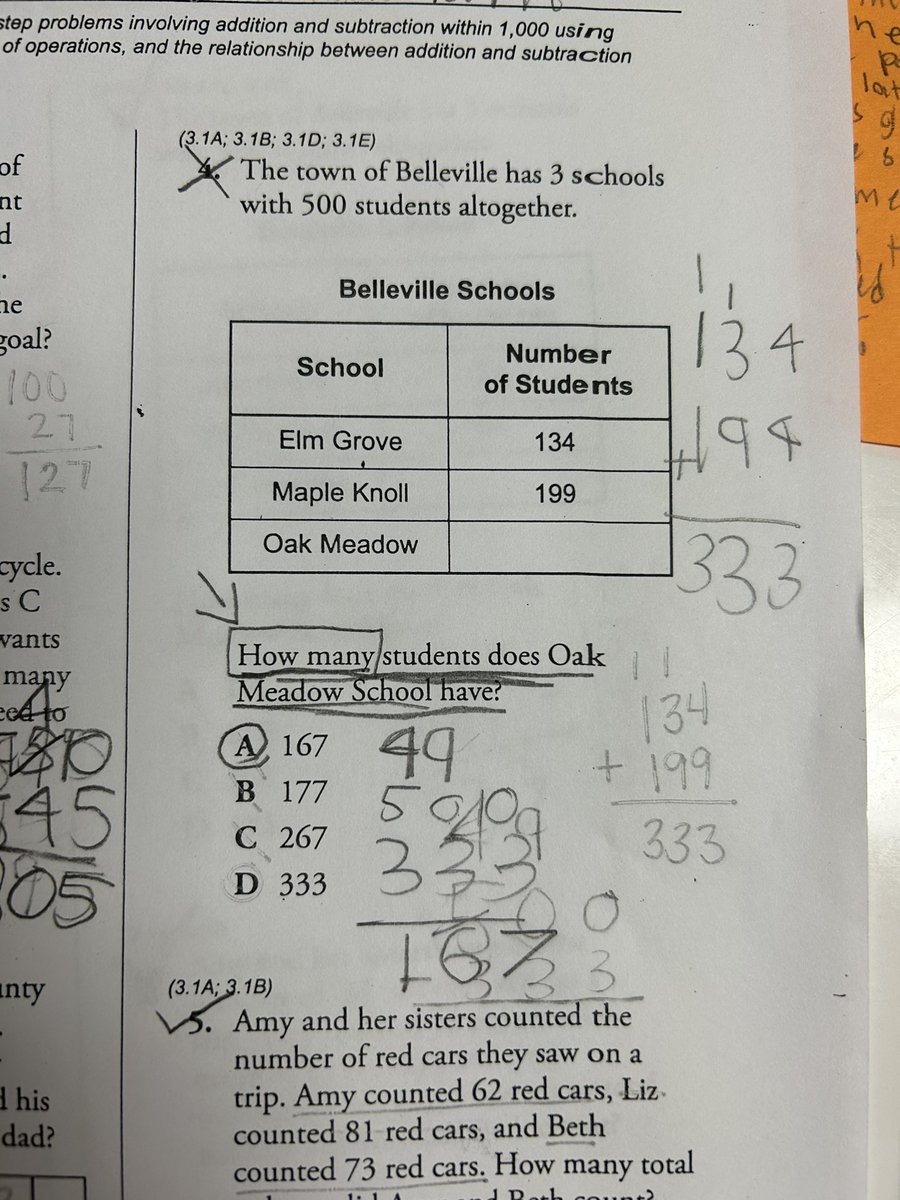 step problems involving addition and subtraction within 1,000 using
of operations, and the relationship between addition and subtraction
of
nt
d
he
goal?
100
27
127
cycle.
s C
wants
many
eed to
45
05
unty
d his
dad?
(3.1A; 3.1B; 3.1D; 3.1E)
4. The town of Belleville has 3 schools
with 500 students altogether.
Belleville Schools
School Number of Students
Elm Grove 134
Maple Knoll 199
Oak Meadow
1 1
134
+199
333
How many students does Oak
Meadow School have?
A 167
B 177
C 267
D 333
49
50
333
167
1 1
134
+ 199
333
(3.1A; 3.1B)
5. Amy and her sisters counted the
number of red cars they saw on a
trip. Amy counted 62 red cars, Liz
counted 81 red cars, and Beth
counted 73 red cars. How many total